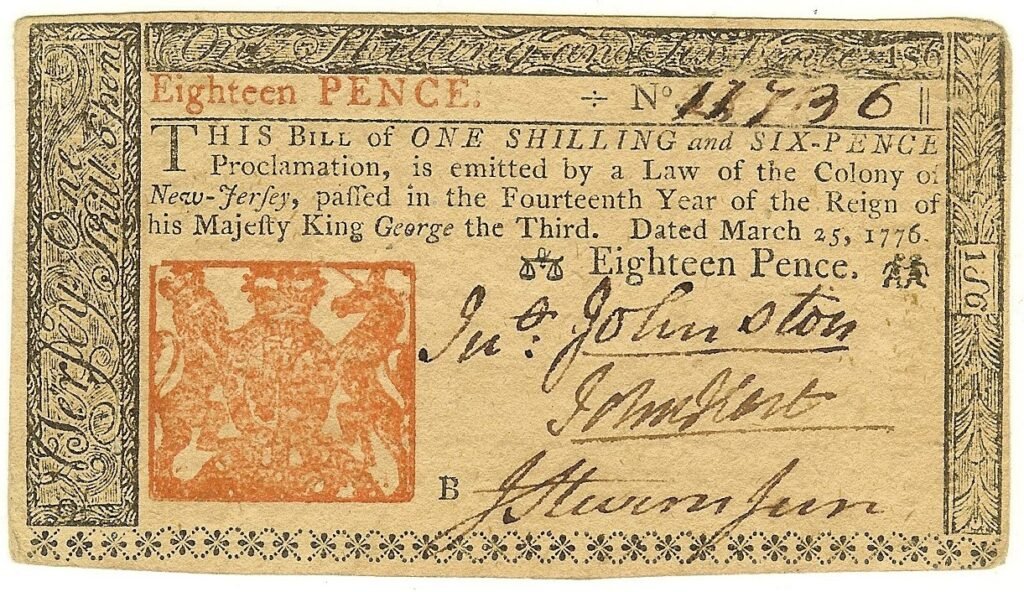 One Shilling and Six Pence 1s6
Eighteen PENCE. ÷ No 11736
THIS BILL of ONE SHILLING and SIX-PENCE
Proclamation, is emitted by a Law of the Colony of
New-Jerſey, paſſed in the Fourteenth Year of the Reign of
his Majeſty King George the Third. Dated March 25, 1776.
Eighteen Pence.
Jno: Johnston
John Hart
B JStevens Jun
N Jersey One Shill. & 6 pen
1s6